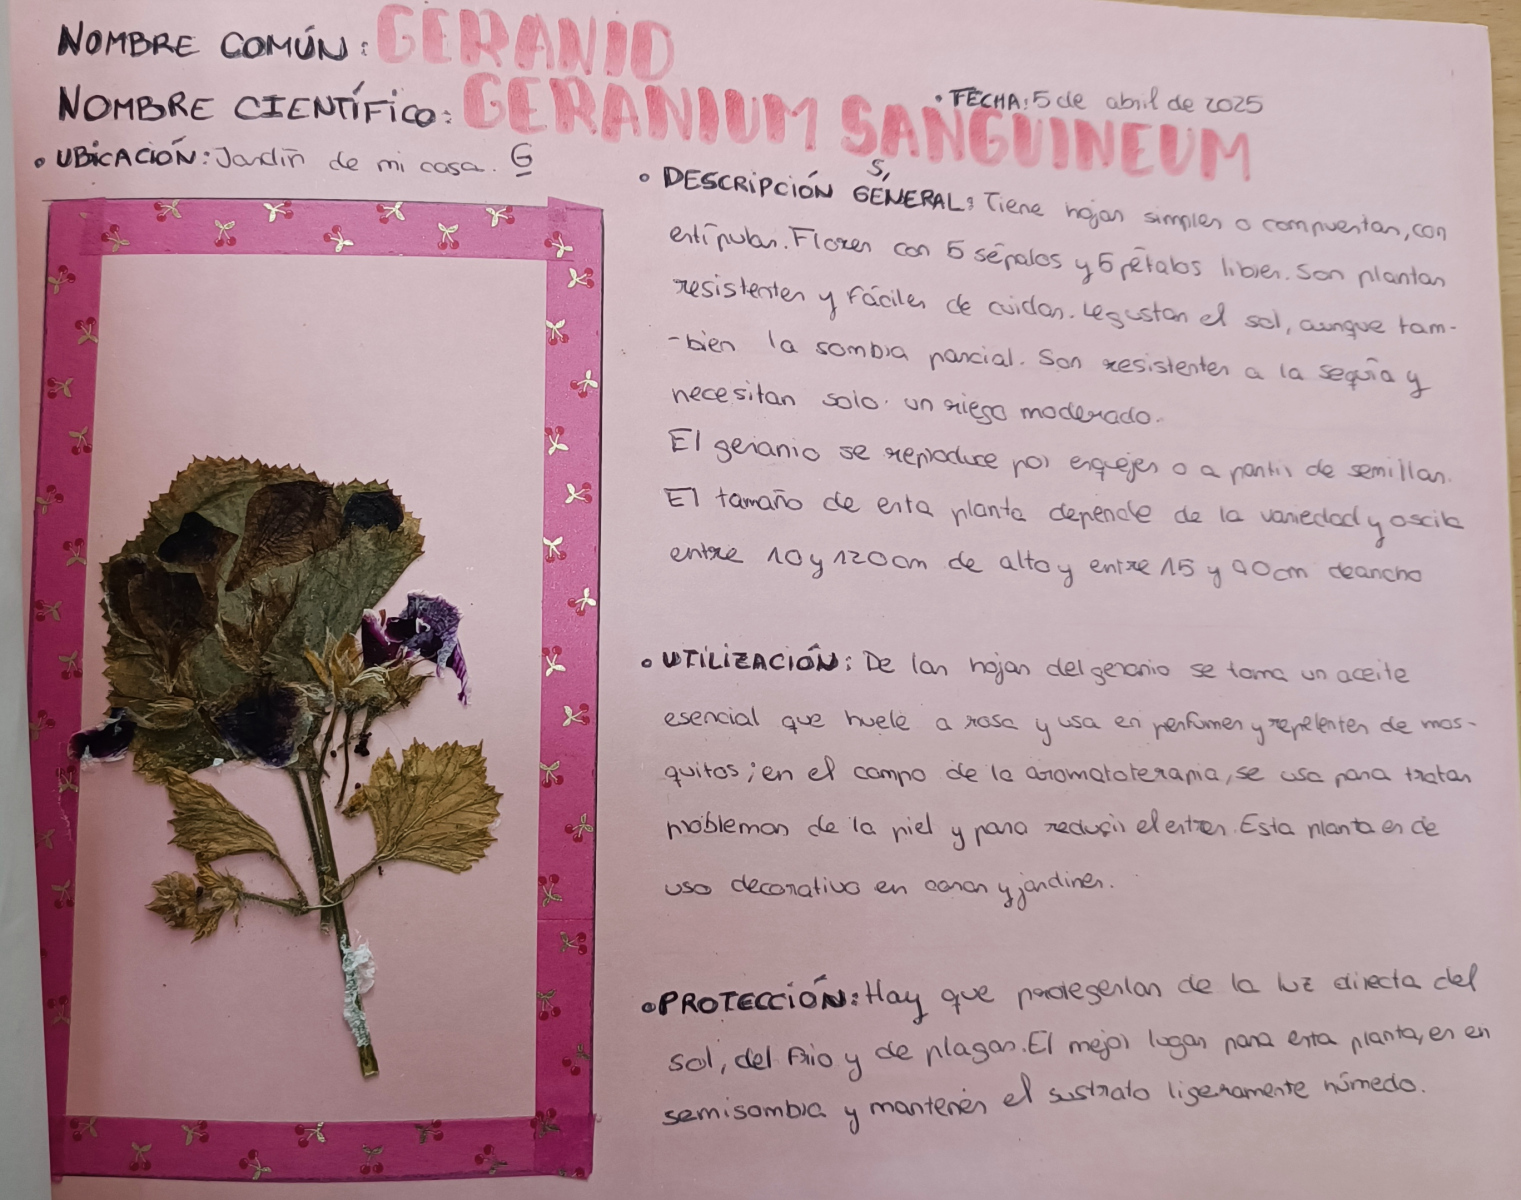 NOMBRE COMÚN: GERANIO
NOMBRE CIENTÍFICO: GERANIUM SANGUINEUM
• FECHA: 5 de abril de 2025
• UBICACIÓN: Jardín de mi casa. G
• DESCRIPCIÓN GENERAL: Tiene hojas simples o compuestas, con
estípulas. Flores con 5 sépalos y 5 pétalos libres. Son plantas
resistentes y fáciles de cuidar. Les gustan el sol, aunque tam-
-bien la sombra parcial. Son resistentes a la sequía y
necesitan solo un riego moderado.
El geranio se reproduce por esquejes o a partir de semillas.
El tamaño de esta planta depende de la variedad y oscila
entre 10 y 120cm de alto y entre 15 y 90cm de ancho
• UTILIZACIÓN: De las hojas del geranio se toma un aceite
esencial que huele a rosa y usa en perfumes y repelentes de mos-
quitos; en el campo de la aromatoterapia, se usa para tratar
problemas de la piel y para reducir el estres. Esta planta es de
uso decorativo en casas y jardines.
• PROTECCIÓN: Hay que protegerlas de la luz directa del
sol, del frio y de plagas. El mejor lugar para esta planta, es en
semisombra y mantener el sustrato ligeramente húmedo.